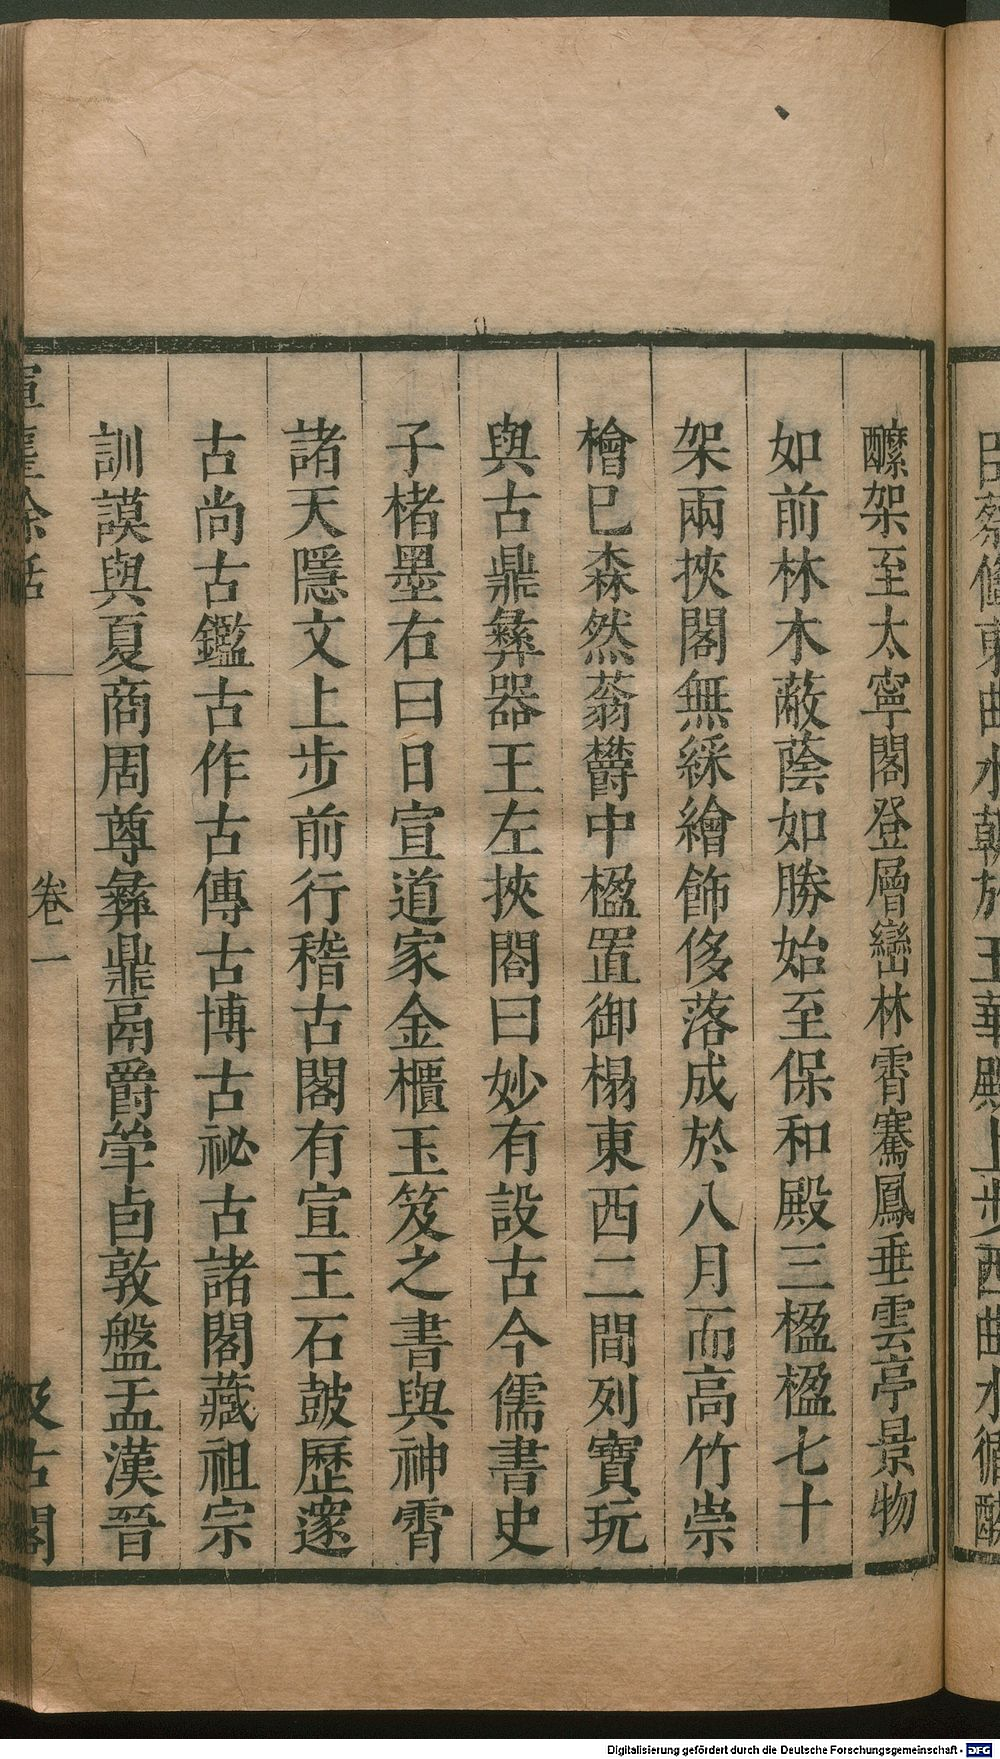 醿架至太寧閣登層巒林霄騫鳳垂雲亭景物
如前林木蔽蔭如勝始至保和殿三楹楹七十
架兩挾閣無綵繪飾侈落成於八月而高竹崇
檜已森然蓊鬱中楹置御榻東西二間列寶玩
與古鼎彝器王左挾閣曰妙有設古今儒書史
子楮墨右曰日宣道家金櫃玉笈之書與神霄
諸天隱文上步前行稽古閣有宣王石鼓歷邃
古尚古鑑古作古傳古博古祕古諸閣藏祖宗
訓謨與夏商周尊彝鼎鬲爵斝卣敦盤盂漢晉
卷一
汲古閣
Digitalisierung gefördert durch die Deutsche Forschungsgemeinschaft - DFG